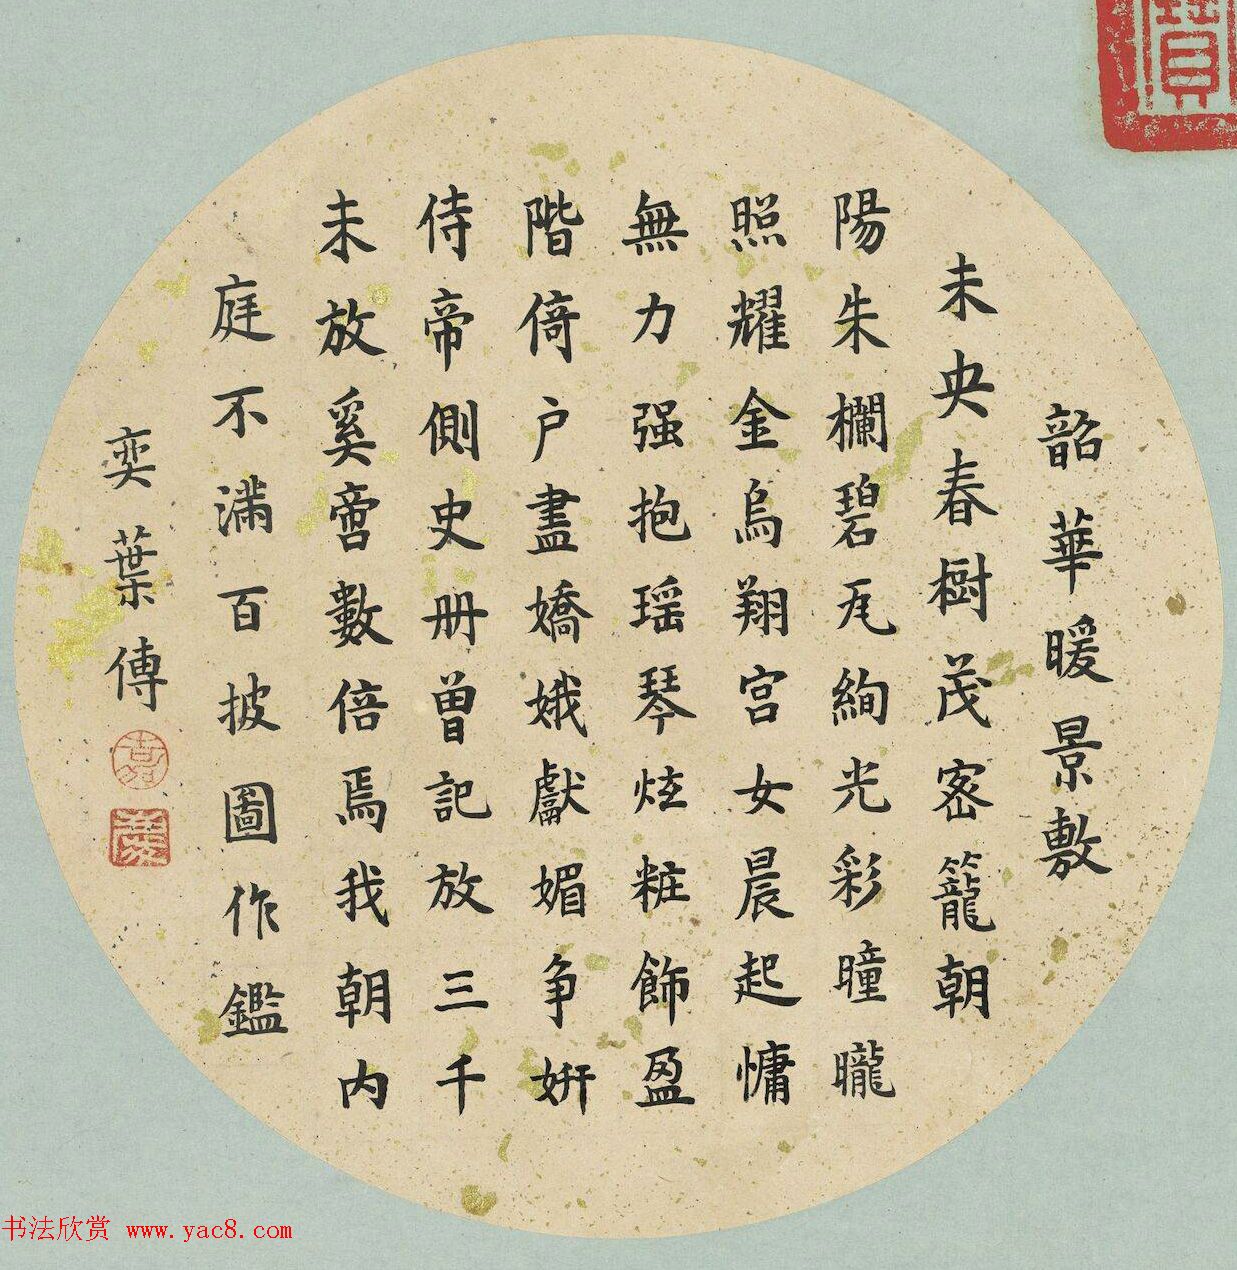 韶華暖景敷
未央春樹茂密籠朝
陽朱欄碧瓦絢光彩曈曨
照耀金烏翔宫女晨起慵
無力强抱瑶琴炫粧飾盈
階倚户盡嬌娥獻媚争妍
侍帝側史册曾記放三千
未放奚啻數倍焉我朝内
庭不滿百披圖作鑑
奕葉傳
寶
书法欣赏 www.yac8.com